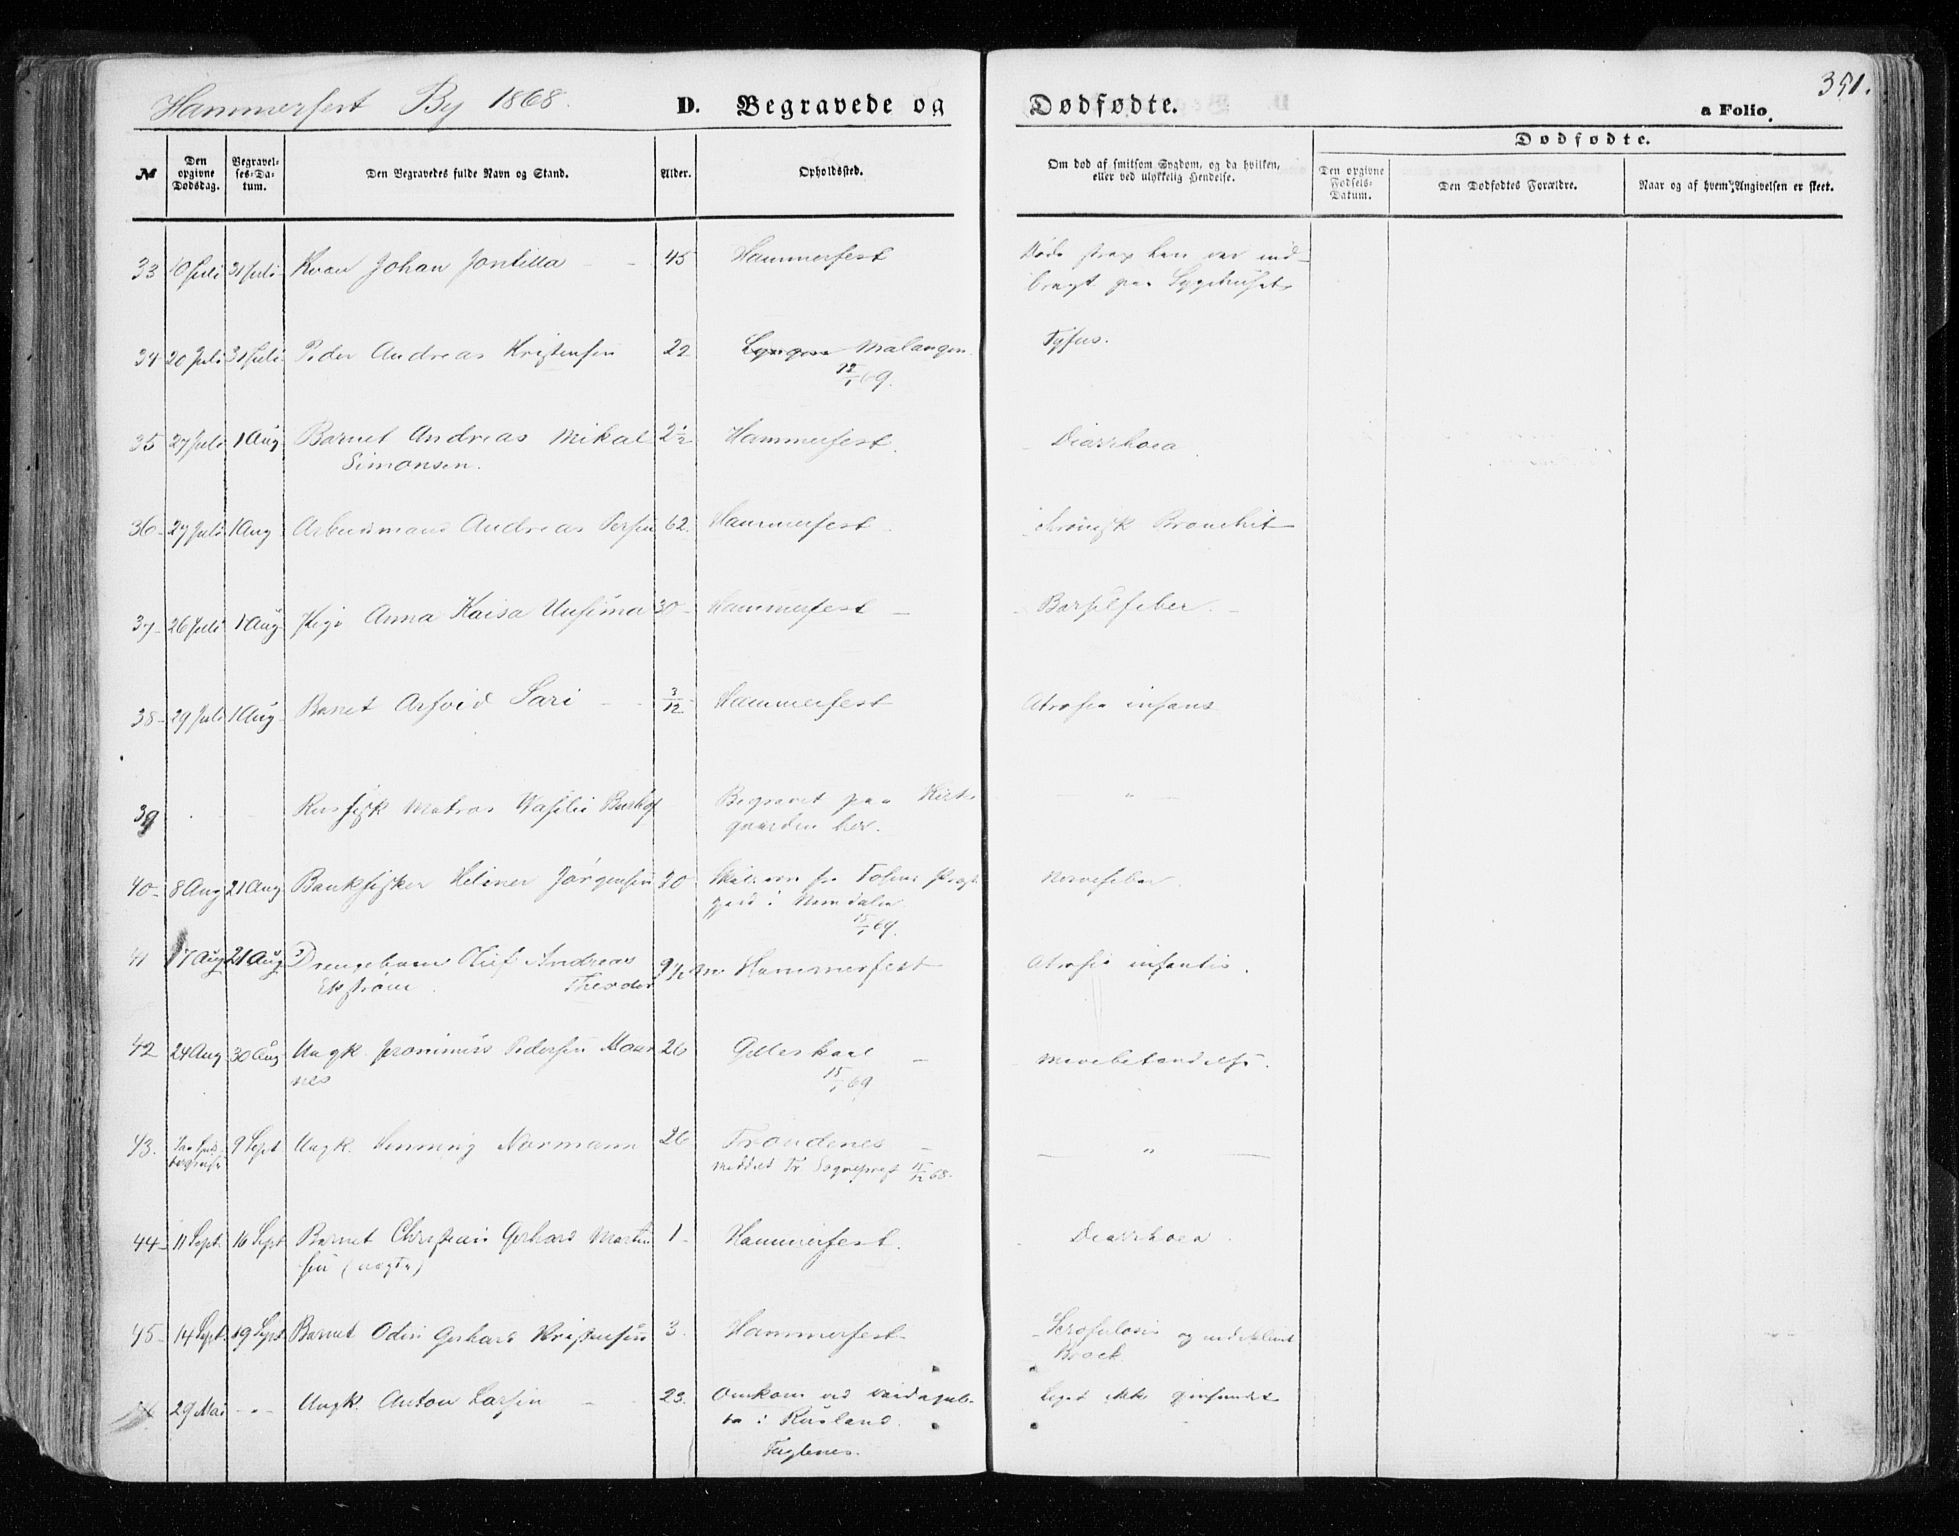 Hammerfest By 1868.
D. Begravede og
Dødfødte.
351.
a Folio.
Dødfødte.
No
Den opgivne Dødsdag.
Begravelses-Datum.
Den Begravedes fulde Navn og Stand.
Alder.
Opholdssted.
Om død af smitsom Sygdom, og da hvilken, eller ved ulykkelig Hendelse.
Den opgivne Fødsels-Datum.
Den Dødfødtes Forældre.
Naar og af hvem Angivelsen er skeet.
33 10 Juli 31 Juli Kvæn Johan 45 Hammerfest Døde strax han var ind-
bragt paa Sygehuset
34 20 Juli 31 Juli Peder Andreas Kristensen 22 Lyngen Malangen Tyfus.
12/1 69.
35 27 Juli 1 Aug Barnet Andreas Mikal 2½ Hammerfest. Diarrhoea.
Simonsen.
36 27 Juli 1 Aug Arbeidsmand Andreas 62 Hammerfest Kronisk Bronchit
37 26 Juli 1 Aug Pige Anna Kaisa 30 Hammerfest Barselfeber.
38 29 Juli 1 Aug Barnet Arfvid Sari 3/12 Hammerfest Atrofia infans
39 Russisk Matros Vasilii Begravet paa Kirke- "
gaarden her.
40 8 Aug 21 Aug Bankfisker Helmer Jørgensen 20 Nervefeber.
gjeld i Namdalen
15/1 69.
41 17 Aug 21 Aug Drengebarn Oluf Andreas 9½ m Hammerfest Atrofia infantis.
Ekstrøm Theodor
42 24 Aug 30 Aug Ungk. Pedersen 26 Gilleskaal Mavebetændelse.
nes 15/1 69
43. 9 Sept Ungk. Henning Normann 26 Trondenes "
meddelt Tr. Sognepræst
44 11 Sept. 16 Sept Barnet Christian Gerhard Martin 1 Hammerfest. Diarrhoea.
sen (uægte)
45 14 Sept. 19 Sept Barnet Odin Gerhard Kristensen 3. Hammerfest Scrofulosis og indeklemt
Brock.
29 Mai Ungk. Anton Larsen 23. Omkom ved Liget ikke gjenfundet
i Rusland.
Fuglenes.